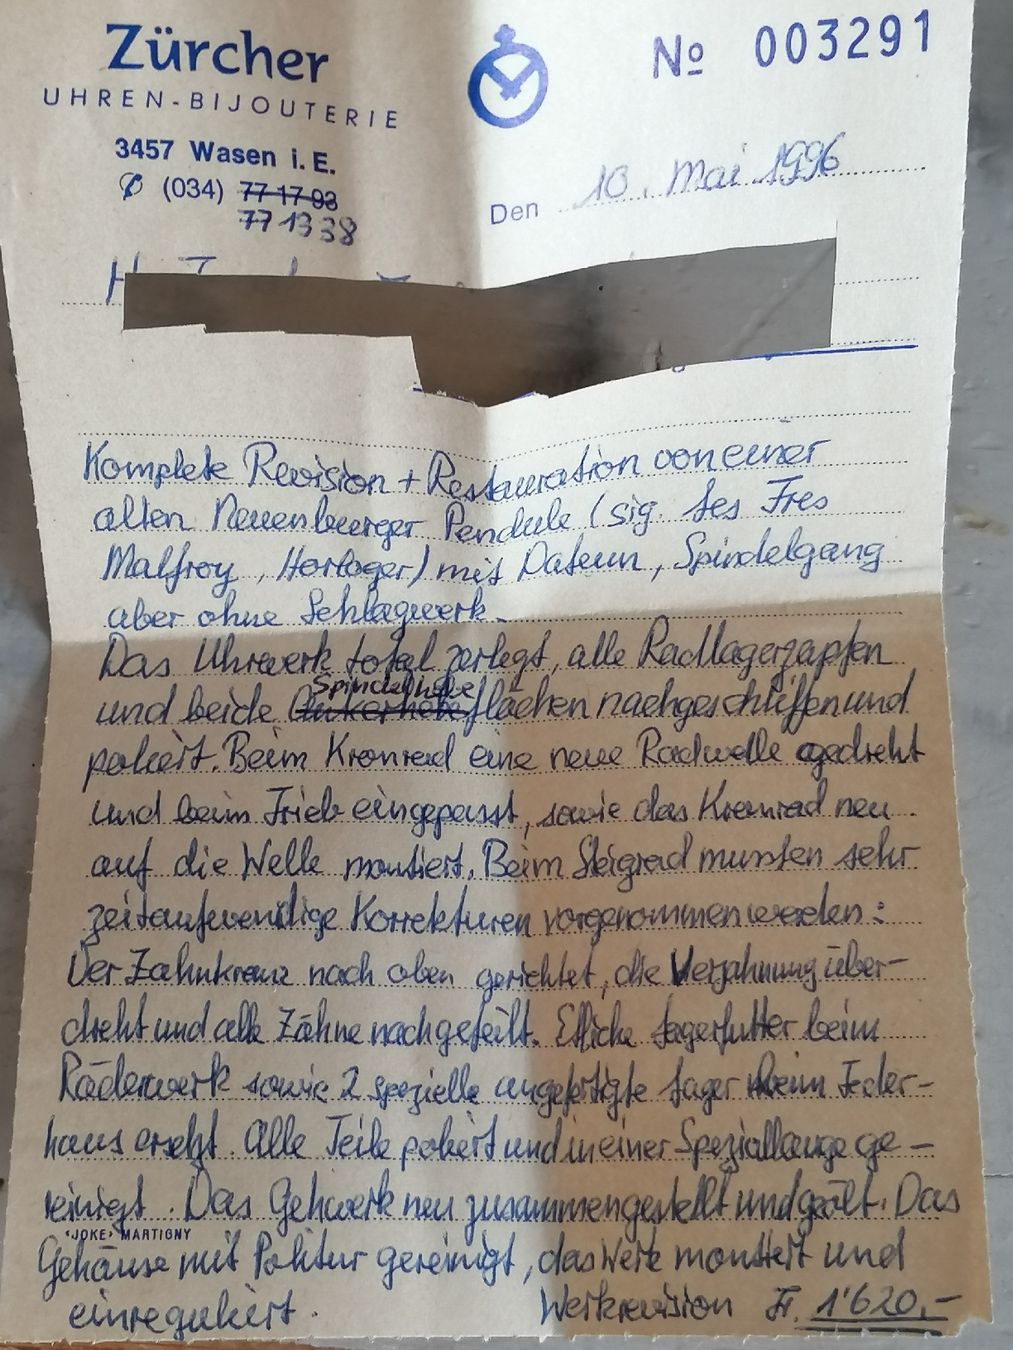 Zürcher
UHREN-BIJOUTERIE
3457 Wasen i. E.
(034) 77 17 93
77 13 38
No 003291
Den 10. Mai 1996
Komplete Revision + Restauration von einer
alten Neuenburger Pendule (sig. Les Fres
Malfroy, Horloger) mit Datum, Spindelgang
aber ohne Schlagwerk.
Das Uhrwerk total zerlegt, alle Radlagerzapfen
Spindelhebe
und beide Ankerhebeflächen nachgeschliffen und
poliert. Beim Kronrad eine neue Radwelle gedreht
und beim Trieb eingepasst, sowie das Kronrad neu
auf die Welle montiert. Beim Steigrad mussten sehr
zeitaufwendige Korrekturen vorgenommen werden:
Der Zahnkranz nach oben gerichtet, die Verzahnung über-
dreht und alle Zähne nachgefeilt. Etliche Lagerfutter beim
Räderwerk sowie 2 spezielle angefertigte Lager beim Feder-
haus ersetzt. Alle Teile poliert und in einer Speziallauge ge-
reinigt. Das Gehwerk neu zusammengestellt und geölt. Das
"JOKE" MARTIGNY
Gehäuse mit Politur gereinigt, das Werk montiert und
einreguliert. Werkrevision Fr. 1'620,-